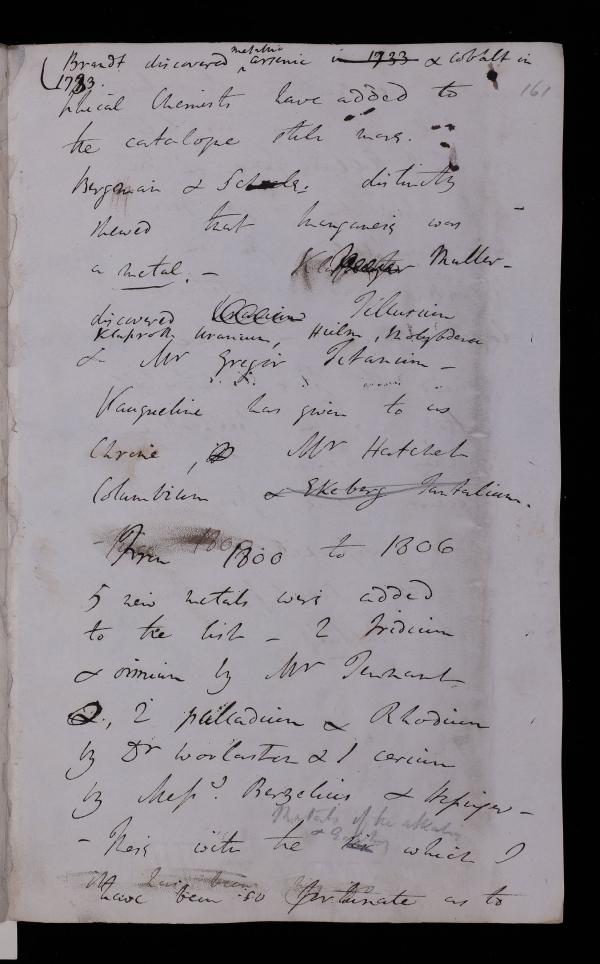 ( Brandt discovered metallic arsenic in 1733 & cobalt in
1733.
161
phical Chemists have added to
the catalogue still more.
Bergman & Scheele. distinctly
shewed that Manganese was
a metal. - Muller -
discovered Uranium Tellurium
Klaproth Uranium, Hielm, Molybdena
& Mr Gregor Titanium -
Vauqueline has given to us
Chrome, Mr Hatchet
Columbium & Ekeberg Tantalium.
- From 1800 to 1806
5 new metals were added
to the list - 2 Iridium
& osmium by Mr Tennant
2, palladium & Rhodium
by Dr Woolaston & 1 cerium
by Messrs. Berzelius & Hisinger -
Metals of the alkalis
&
- These with the which I
have been so fortunate as to